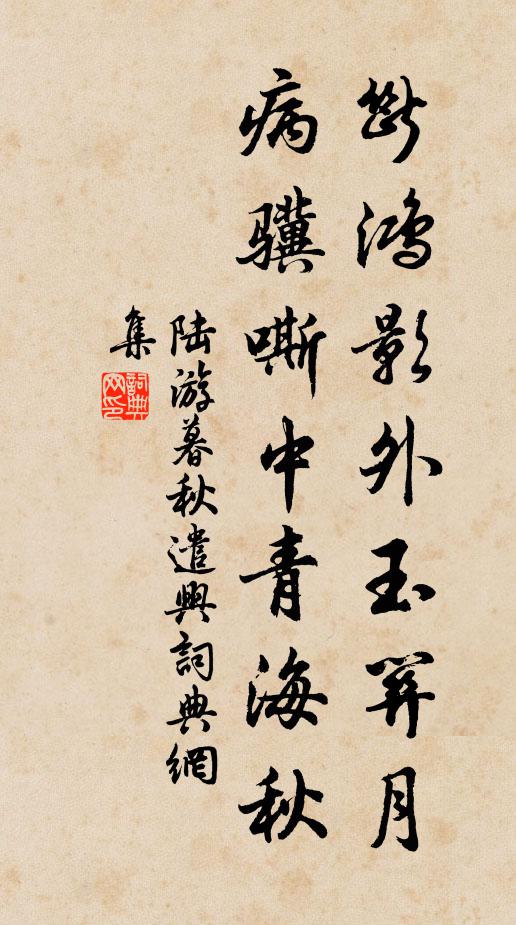 断鸿影外玉关月
病骥嘶中青海秋
陆游暮秋遣兴词典網
集
詞典網印